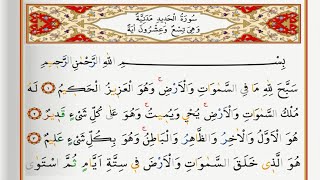 سُورَةُ الْحَدِيدِ مَدَنِيَّةٌ
وَهِيَ تِسْعٌ وَعِشْرُونَ اٰيَةً
بِسْمِ اللّٰهِ الرَّحْمٰنِ الرَّحِيمِ
سَبَّحَ لِلّٰهِ مَا فِي السَّمٰوَاتِ وَالْاَرْضِۚ وَهُوَ الْعَزِيزُ الْحَكِيمُ ﴿١﴾ لَهُ
مُلْكُ السَّمٰوَاتِ وَالْاَرْضِۚ يُحْيِي وَيُمِيتُۚ وَهُوَ عَلٰى كُلِّ شَيْءٍ قَدِيرٌ ﴿٢﴾
هُوَ الْاَوَّلُ وَالْاٰخِرُ وَالظَّاهِرُ وَالْبَاطِنُۚ وَهُوَ بِكُلِّ شَيْءٍ عَلِيمٌ ﴿٣﴾
هُوَ الَّذِي خَلَقَ السَّمٰوَاتِ وَالْاَرْضَ فِي سِتَّةِ اَيَّامٍ ثُمَّ اسْتَوٰى